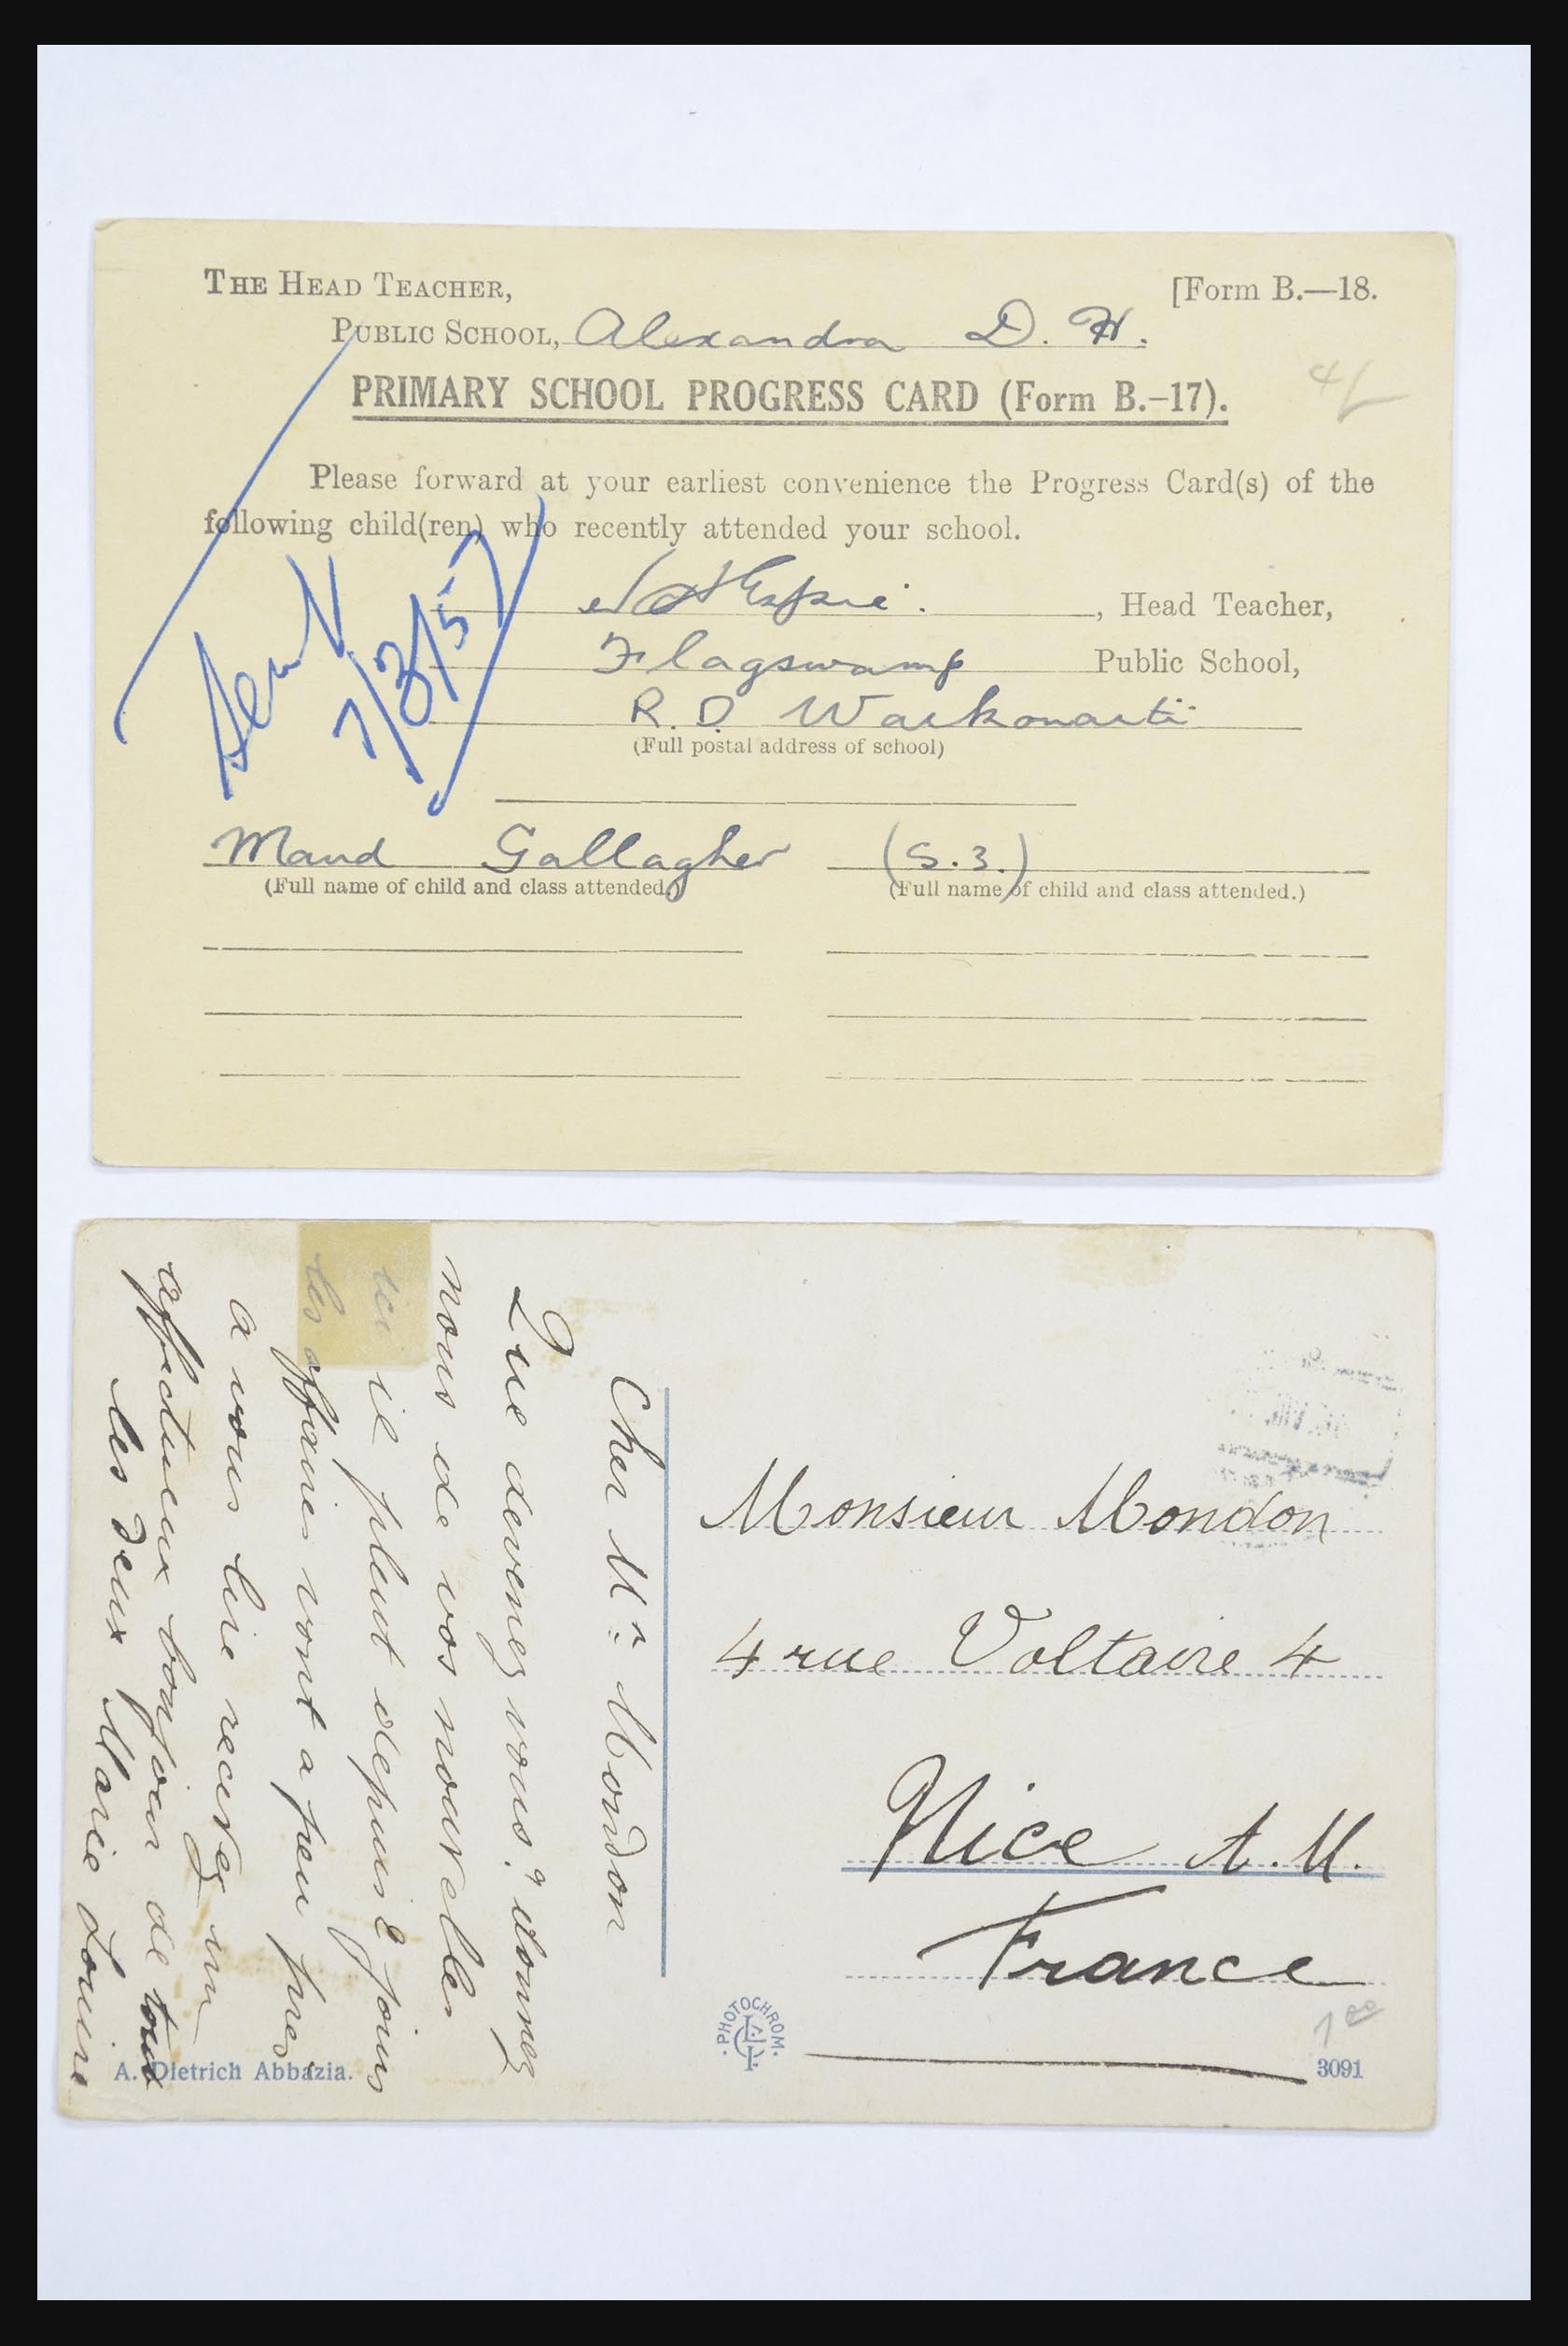 THE HEAD TEACHER,
[Form B.—18.
PUBLIC SCHOOL, Alexandra D. H.
PRIMARY SCHOOL PROGRESS CARD (Form B.–17).
4/
Please forward at your earliest convenience the Progress Card(s) of the
following child(ren) who recently attended your school.
, Head Teacher,
Flagswamp Public School,
R.D. Waikouaiti
(Full postal address of school)
Sent
7/3/57
Maud Gallagher (S.3.)
(Full name of child and class attended.)
(Full name of child and class attended.)
Cher Mr Mondon
Que devenez vous? donnez
nous de vos nouvelles
ici il pleut depuis 8 jours
les affaires vont a peu pres
a vous lire recevez un
affectueux bonjour de tous
les deux Marie Louise
A. Dietrich Abbazia.
Monsieur Mondon
4 rue Voltaire 4
Nice A.M.
France
PHOTOCHROM.
1 00
3091